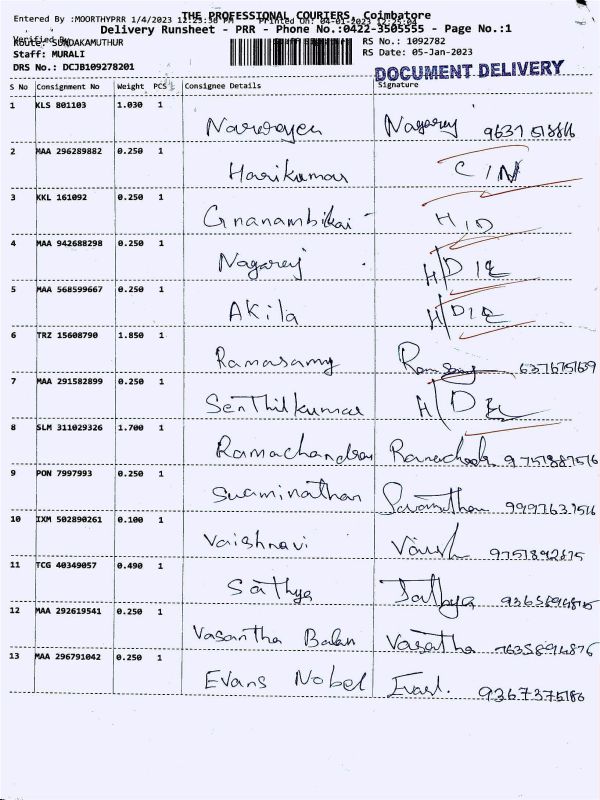 THE PROFESSIONAL COURIERS, Coimbatore
Entered By :MOORTHYPRR 1/4/2023 12:25:30 PM Printed On: 04-01-2023 12:25:04
Delivery Runsheet - PRR - Phone No.:0422-3505555 - Page No.:1
Verified By
Route: SUNDAKAMUTHUR RS No.: 1092782
Staff: MURALI RS Date: 05-Jan-2023
DRS No.: DCJB109278201 DOCUMENT DELIVERY
S No Consignment No Weight PCS Consignee Details Signature
1 KLS 801103 1.030 1
Narayanan Nagaraj
2 MAA 296289882 0.250 1
Harikumar C/N
3 KKL 161092 0.250 1
Gnanambikai H/D
4 MAA 942688298 0.250 1
Nagaraj H/DIL
5 MAA 568599667 0.250 1
Akila H/DIL
6 TRZ 15608790 1.850 1
Ramasamy
7 MAA 291582899 0.250 1
Senthilkumar
8 SLM 311029326 1.700 1
Ramachandran
9 PON 7997993 0.250 1
Swaminathan
10 IXM 502890261 0.100 1
Vaishnavi 9751892875
11 TCG 40349057 0.490 1
Sathya Sathya
12 MAA 292619541 0.250 1
Vasantha Balan Vasatha
13 MAA 296791042 0.250 1
Evans Nobel 9367375186